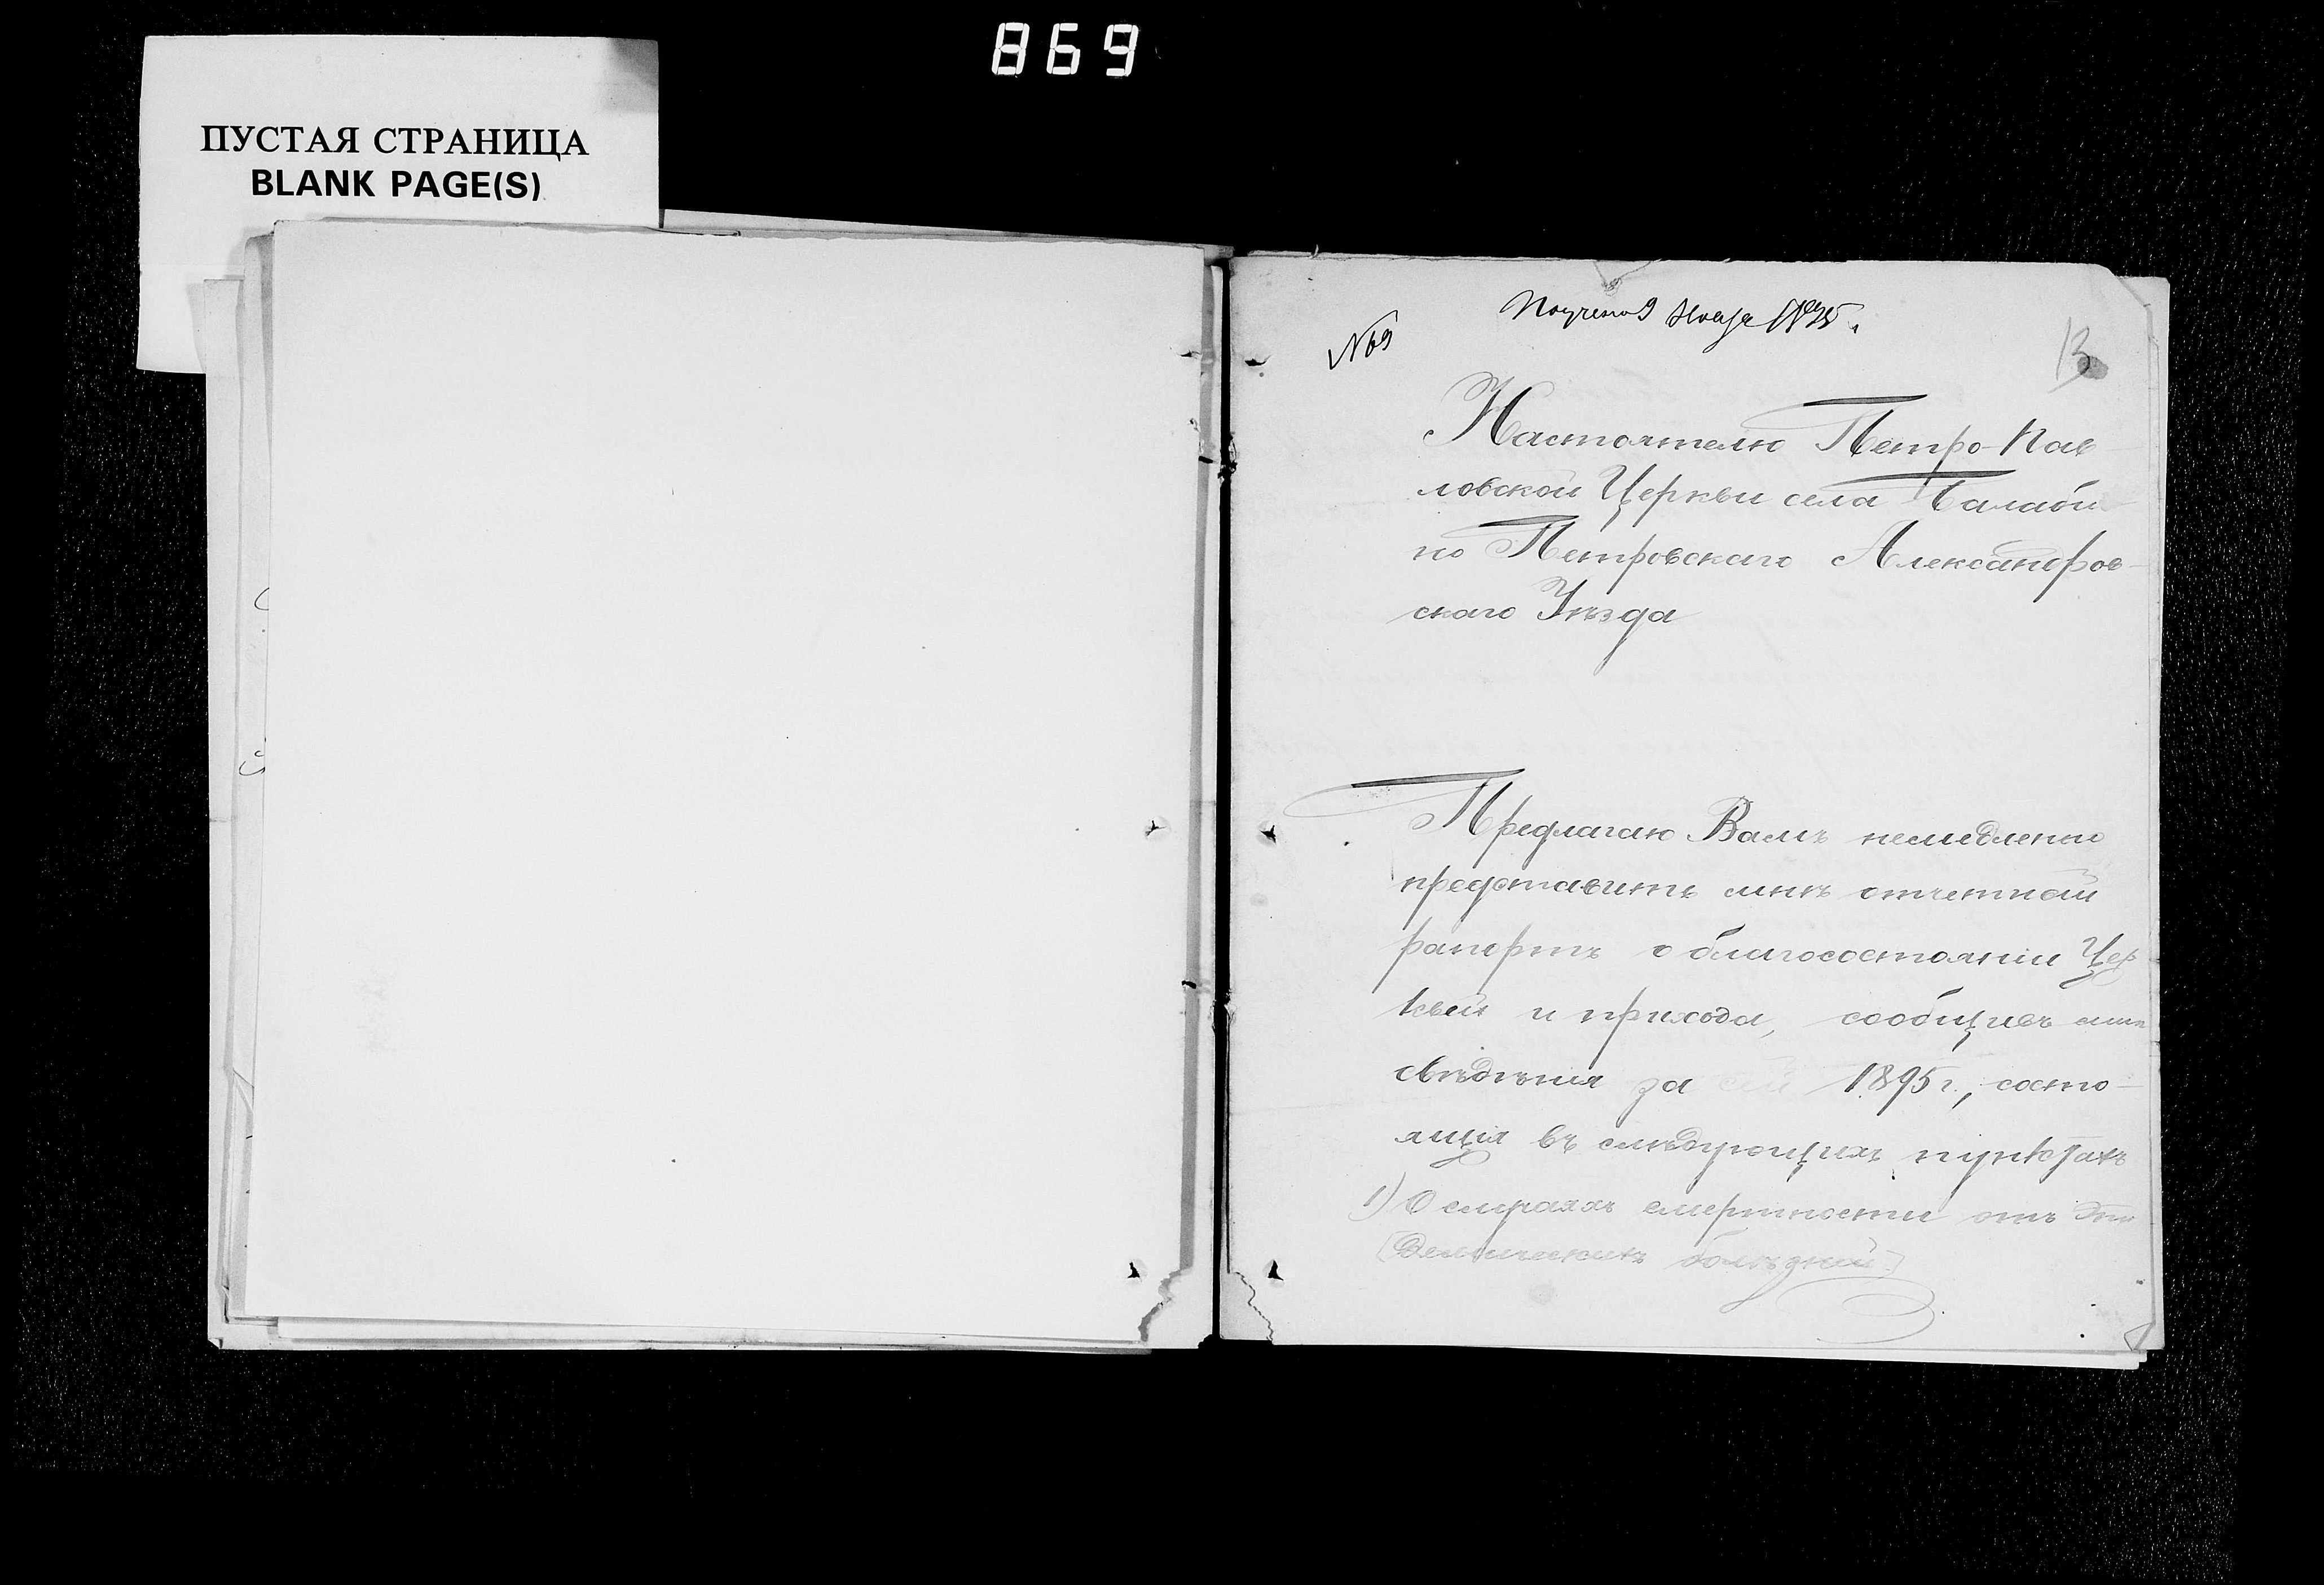 869
ПУСТАЯ СТРАНИЦА
BLANK PAGE(S)
Получено 9 Ноябр 1895 г.
№ 69
13
Настоятелю Петро-Пав
ловской Церкви села Балаби
но Петровскаго Александров-
скаго Уѣзда
Предлагаю Вамъ немедленно
представить мнѣ отчетный
рапортъ о благосостоянiи Цер
квей и прихода, сообщивъ мнѣ
свѣдѣнiя за сей 1895 г., состо-
ящiя въ слѣдующихъ пунктахъ
1) О случаяхъ смертности отъ Эпи
(демическихъ болѣзней)